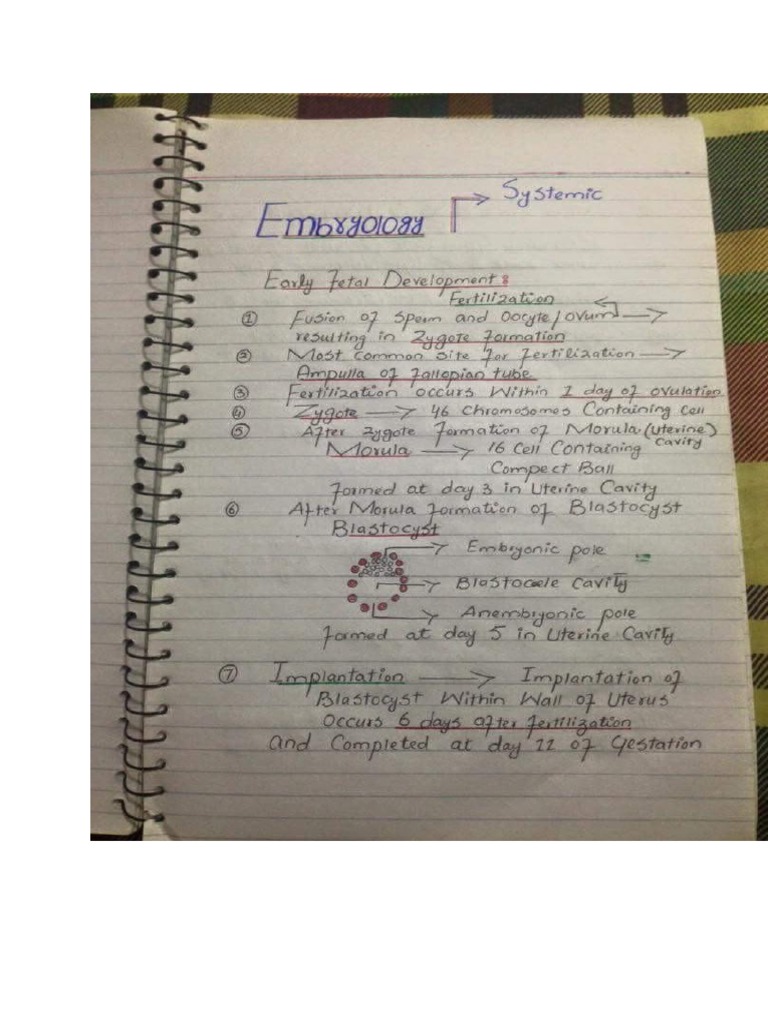 Systemic
Embryology
Early Fetal Development:
Fertilization
① Fusion of sperm and Oocyte/ovum
resulting in Zygote Formation
② Most common site for fertilization
Ampulla of Fallopian tube
③ Fertilization occurs within 1 day of ovulation
④ Zygote → 46 chromosomes Containing cell
⑤ After zygote Formation of Morula (Uterine
cavity)
Morula → 16 Cell Containing
Compect Ball
Formed at day 3 in Uterine Cavity
⑥ After Morula Formation of Blastocyst
Blastocyst
Embryonic pole
Blastocoele Cavity
Anembryonic pole
Formed at day 5 in Uterine Cavity
⑦ Implantation → Implantation of
Blastocyst Within Wall of Uterus
Occurs 6 days after fertilization
and Completed at day 11 of Gestation